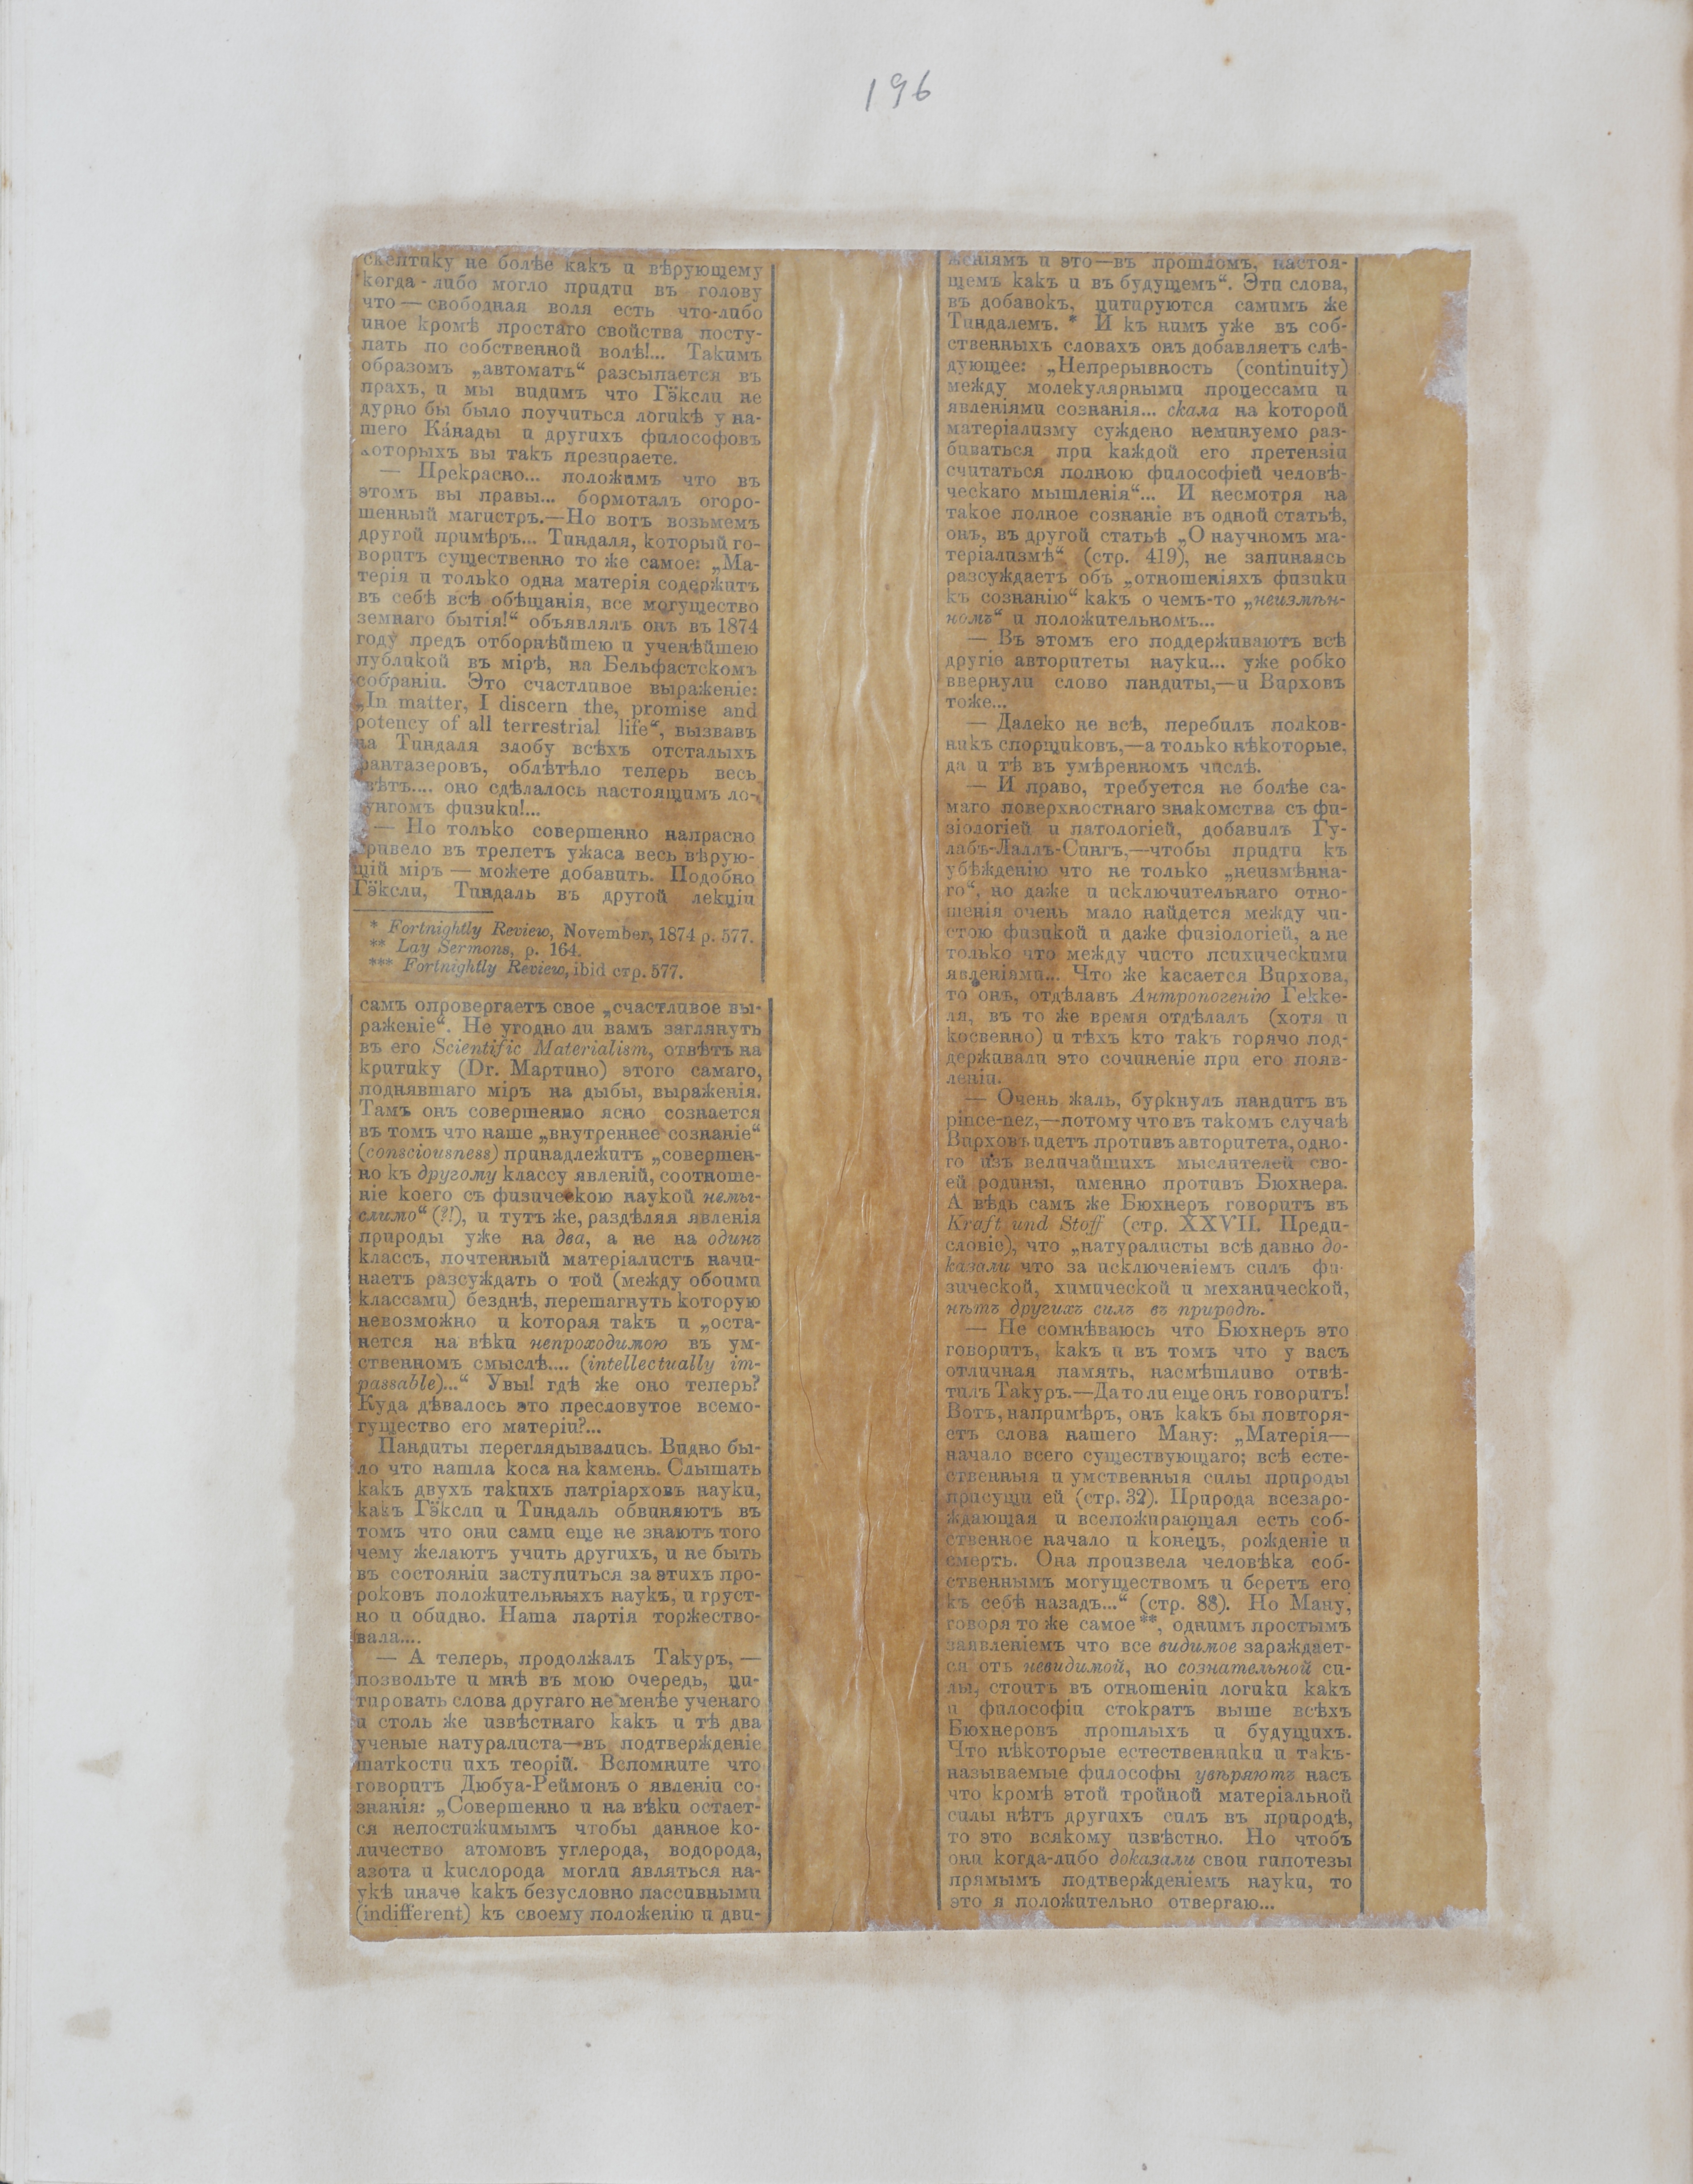 196
скептику не болѣе какъ и вѣрующему
когда-либо могло придти въ голову
что — свободная воля есть что-либо
иное кромѣ простаго свойства посту-
пать по собственной волѣ!... Такимъ
образомъ „автоматъ“ разсыпается въ
прахъ, и мы видимъ что Гэксли не
дурно бы было поучиться логикѣ у на-
шего Ка́нады и другихъ философовъ
которыхъ вы такъ презираете.
— Прекрасно... положимъ что въ
этомъ вы правы... бормоталъ огоро-
шенный магистръ.—Но вотъ возьмемъ
другой примѣръ... Тиндаля, который го-
воритъ существенно то же самое: „Ма-
терія и только одна матерія содержитъ
въ себѣ всѣ обѣщанія, все могущество
земнаго бытія!“ объявлялъ онъ въ 1874
году предъ отборнѣйшею и ученѣйшею
публикой въ мірѣ, на Бельфастскомъ
собраніи. Это счастливое выраженіе:
„In matter, I discern the, promise and
potency of all terrestrial life“, вызвавъ
на Тиндаля злобу всѣхъ отсталыхъ
фантазеровъ, облѣтѣло теперь весь
свѣтъ.... оно сдѣлалось настоящимъ ло-
зунгомъ физики!...
— Но только совершенно напрасно
привело въ трепетъ ужаса весь вѣрую-
щій міръ — можете добавить. Подобно
Гэксли, Тиндаль въ другой лекціи
* Fortnightly Review, November, 1874 p. 577.
** Lay Sermons, p. 164.
*** Fortnightly Review, ibid стр. 577.
самъ опровергаетъ свое „счастливое вы-
раженіе“. Не угодно ли вамъ заглянуть
въ его Scientific Materialism, отвѣтъ на
критику (Dr. Мартино) этого самаго,
поднявшаго міръ на дыбы, выраженія.
Тамъ онъ совершенно ясно сознается
въ томъ что наше „внутреннее сознаніе“
(consciousness) принадлежитъ „совершен-
но къ другому классу явленій, соотноше-
ніе коего съ физическою наукой немы-
слимо“ (?!), и тутъ же, раздѣляя явленія
природы уже на два, а не на одинъ
классъ, почтенный матеріалистъ начи-
наетъ разсуждать о той (между обоими
классами) безднѣ, перешагнуть которую
невозможно и которая такъ и „оста-
нется на вѣки непроходимою въ ум-
ственномъ смыслѣ.... (intellectually im-
passable)...“ Увы! гдѣ же оно теперь?
Куда дѣвалось это пресловутое всемо-
гущество его матеріи?...
Пандиты переглядывались. Видно бы-
ло что нашла коса на камень. Слышать
какъ двухъ такихъ патріарховъ науки,
какъ Гэксли и Тиндаль обвиняютъ въ
томъ что они сами еще не знаютъ того
чему желаютъ учить другихъ, и не быть
въ состояніи заступиться за этихъ про-
роковъ положительныхъ наукъ, и груст-
но и обидно. Наша партія торжество-
вала....
— А теперь, продолжалъ Такуръ, —
позвольте и мнѣ въ мою очередь, ци-
тировать слова другаго не менѣе ученаго
и столь же извѣстнаго какъ и тѣ два
ученые натуралиста—въ подтвержденіе
шаткости ихъ теорій. Вспомните что
говоритъ Дюбуа-Реймонъ о явленіи со-
знанія: „Совершенно и на вѣки остает-
ся непостижимымъ чтобы данное ко-
личество атомовъ углерода, водорода,
азота и кислорода могли являться на-
укѣ иначе какъ безусловно пассивными
(indifferent) къ своему положенію и дви-
женіямъ и это—въ прошломъ, настоя-
щемъ какъ и въ будущемъ“. Эти слова,
въ добавокъ, цитируются самимъ же
Тиндалемъ. * И къ нимъ уже въ соб-
ственныхъ словахъ онъ добавляетъ слѣ-
дующее: „Непрерывность (continuity)
между молекулярными процессами и
явленіями сознанія... скала на которой
матеріализму суждено неминуемо раз-
биваться при каждой его претензіи
считаться полною философіей человѣ-
ческаго мышленія“... И несмотря на
такое полное сознаніе въ одной статьѣ,
онъ, въ другой статьѣ „О научномъ ма-
теріализмѣ“ (стр. 419), не запинаясь
разсуждаетъ объ „отношеніяхъ физики
къ сознанію“ какъ о чемъ-то „неизмѣн-
номъ“ и положительномъ...
— Въ этомъ его поддерживаютъ всѣ
другіе авторитеты науки... уже робко
ввернули слово пандиты,—и Вирховъ
тоже...
— Далеко не всѣ, перебилъ полков-
никъ спорщиковъ,—а только нѣкоторые,
да и тѣ въ умѣренномъ числѣ.
— И право, требуется не болѣе са-
маго поверхностнаго знакомства съ фи-
зіологіей и патологіей, добавилъ Гу-
лабъ-Лаллъ-Сингъ,—чтобы придти къ
убѣжденію что не только „неизмѣнна-
го“, но даже и исключительнаго отно-
шенія очень мало найдется между чи-
стою физикой и даже физіологіей, а не
только что между чисто психическими
явленіями... Что же касается Вирхова,
то онъ, отдѣлавъ Антропогенію Гекке-
ля, въ то же время отдѣлалъ (хотя и
косвенно) и тѣхъ кто такъ горячо под-
держивали это сочиненіе при его появ-
леніи.
— Очень жаль, буркнулъ пандитъ въ
pince-nez,—потому что въ такомъ случаѣ
Вирховъ идетъ противъ авторитета, одно-
го изъ величайшихъ мыслителей сво-
ей родины, именно противъ Бюхнера.
А вѣдь самъ же Бюхнеръ говоритъ въ
Kraft und Stoff (стр. XXVII. Преди-
словіе), что „натуралисты всѣ давно до-
казали что за исключеніемъ силъ фи-
зической, химической и механической,
нѣтъ другихъ силъ въ природѣ.“
— Не сомнѣваюсь что Бюхнеръ это
говоритъ, какъ и въ томъ что у васъ
отличная память, насмѣшливо отвѣ-
тилъ Такуръ.—Да то ли еще онъ говоритъ!
Вотъ, напримѣръ, онъ какъ бы повторя-
етъ слова нашего Ману: „Матерія—
начало всего существующаго; всѣ есте-
ственныя и умственныя силы природы
присущи ей (стр. 32). Природа всезаро-
ждающая и всепожирающая есть соб-
ственное начало и конецъ, рожденіе и
смерть. Она произвела человѣка соб-
ственнымъ могуществомъ и беретъ его
къ себѣ назадъ...“ (стр. 88). Но Ману,
говоря то же самое **, однимъ простымъ
заявленіемъ что все видимое зараждает-
ся отъ невидимой, но сознательной си-
лы, стоитъ въ отношеніи логики какъ
и философіи стократъ выше всѣхъ
Бюхнеровъ прошлыхъ и будущихъ.
Что нѣкоторые естественники и такъ-
называемые философы увѣряютъ насъ
что кромѣ этой тройной матеріальной
силы нѣтъ другихъ силъ въ природѣ,
то это всякому извѣстно. Но чтобъ
они когда-либо доказали свои гипотезы
прямымъ подтвержденіемъ науки, то
это я положительно отвергаю...